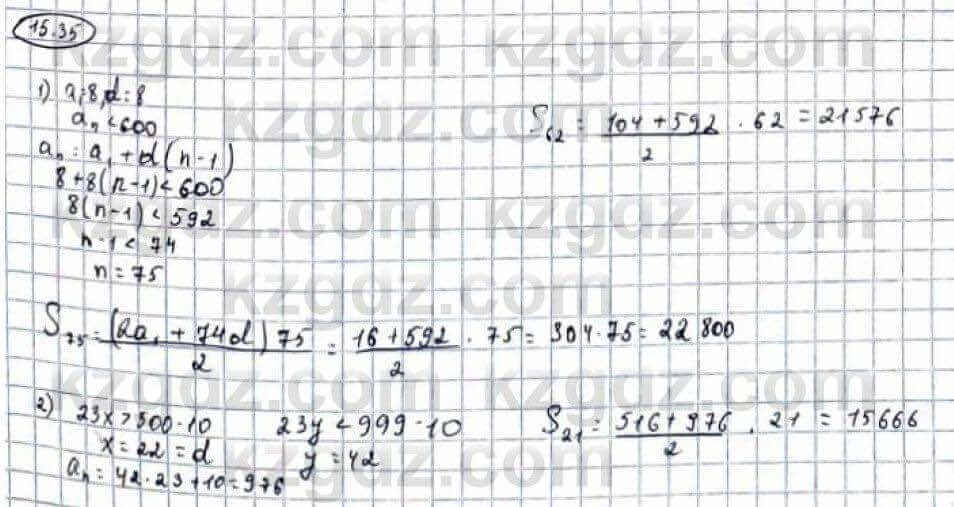 15.35
kzgdz.com kzgdz.com
1) a₁=8, d=8
aₙ<600
aₙ=a₁+d(n-1)
8+8(n-1)<600
8(n-1)<592
n-1<74
n=75
S₆₂=(104+592)/2·62=21576
S₇₅=(2a₁+74d)75/2=(16+592)/2·75=304·75=22 800
2) 23x>500-10
x=22=d
aₙ=42·23+10=976
23y<999-10
y=42
S₂₁=(516+976)/2·21=15666